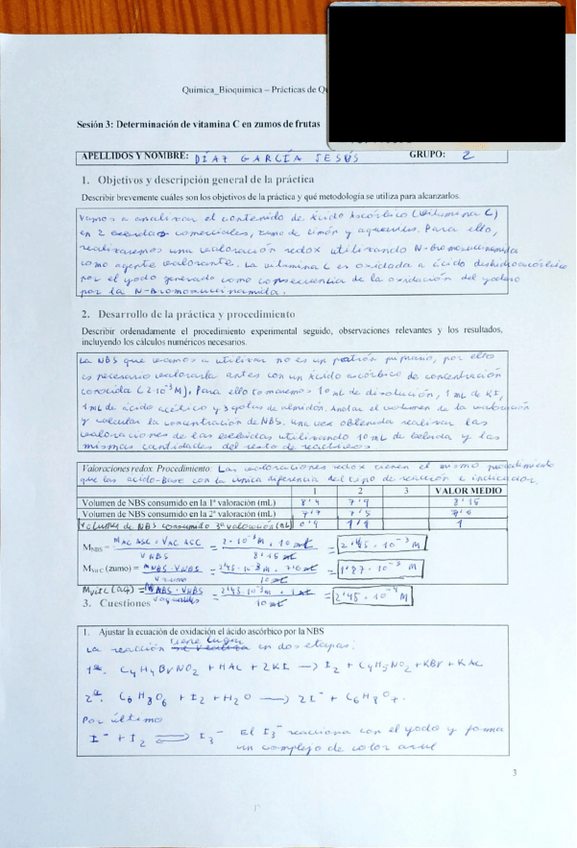 Química_Bioquímica – Prácticas de Qu
Sesión 3: Determinación de vitamina C en zumos de frutas
APELLIDOS Y NOMBRE: DÍAZ GARCÍA JESÚS GRUPO: 2
1. Objetivos y descripción general de la práctica
Describir brevemente cuáles son los objetivos de la práctica y qué metodología se utiliza para alcanzarlos.
Vamos a analizar el contenido de Ácido Ascórbico (Vitamina C)
en 2 bebidas comerciales, zumo de limón y aquarius. Para ello,
realizaremos una valoración redox utilizando N-Bromosuccinimida
como agente valorante. La vitamina C es oxidada a ácido deshidroascórbico
por el yodo generado como consecuencia de la oxidación del yoduro
por la N-Bromosuccinimida.
2. Desarrollo de la práctica y procedimiento
Describir ordenadamente el procedimiento experimental seguido, observaciones relevantes y los resultados,
incluyendo los cálculos numéricos necesarios.
La NBS que vamos a utilizar no es un patrón primario, por ello
es necesario valorarla antes con un Ácido ascórbico de concentración
conocida (2·10⁻³M). Para ello tomaremos 10 mL de disolución, 1 mL de KI,
1 mL de ácido acético y 5 gotas de almidón. Anotar el volumen de la valoración
y calcular la concentración de NBS. Una vez obtenida realizar las
valoraciones de las bebidas utilizando 10 mL de bebida y las
mismas cantidades del resto de reactivos
Valoraciones redox. Procedimiento: Las valoraciones redox tienen el mismo procedimiento
que las ácido-Base con la única diferencia del tipo de reacción e indicador.
1 2 3 VALOR MEDIO
Volumen de NBS consumido en la 1ª valoración (mL) 8'4 7'9 8'15
Volumen de NBS consumido en la 2ª valoración (mL) 7'7 7'5 7'6
Volumen de NBS consumido 3ª valoración (mL) 0'9 1'1 1
M NBS = M AC ASC · V AC ASC / V NBS = 2·10⁻³M · 10 mL / 8'15 mL = 2'45·10⁻³ M
M vit C (zumo) = M NBS · V NBS / V zumo = 2'45·10⁻³M · 7'6 mL / 10 mL = 1'87·10⁻³ M
M vit C (aq) = M NBS · V NBS / V aquarius = 2'45·10⁻³M · 1 mL / 10 mL = 2'45·10⁻⁴ M
3. Cuestiones
1. Ajustar la ecuación de oxidación el ácido ascórbico por la NBS
La reacción tiene lugar en dos etapas:
1ª. C₄H₄BrNO₂ + HAC + 2KI ⟶ I₂ + C₄H₅NO₂ + KBr + KAC
2ª. C₆H₈O₆ + I₂ + H₂O ⟶ 2I⁻ + C₆H₈O₇.
Por último
I⁻ + I₂ ⇌ I₃⁻ El I₃⁻ reacciona con el yodo y forma
un complejo de color azul
3